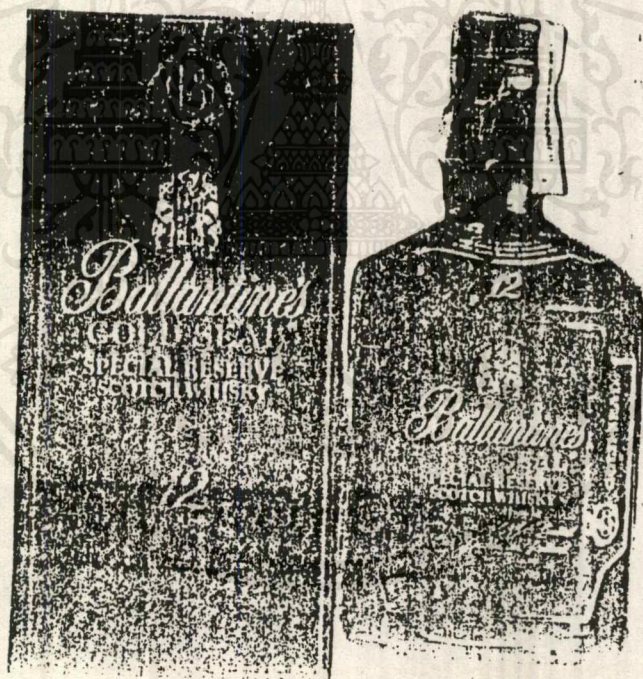 B
Ballantine's
GOLD SEAL
SPECIAL RESERVE
SCOTCH WHISKY
12
12
Ballantine's
SPECIAL RESERVE
SCOTCH WHISKY